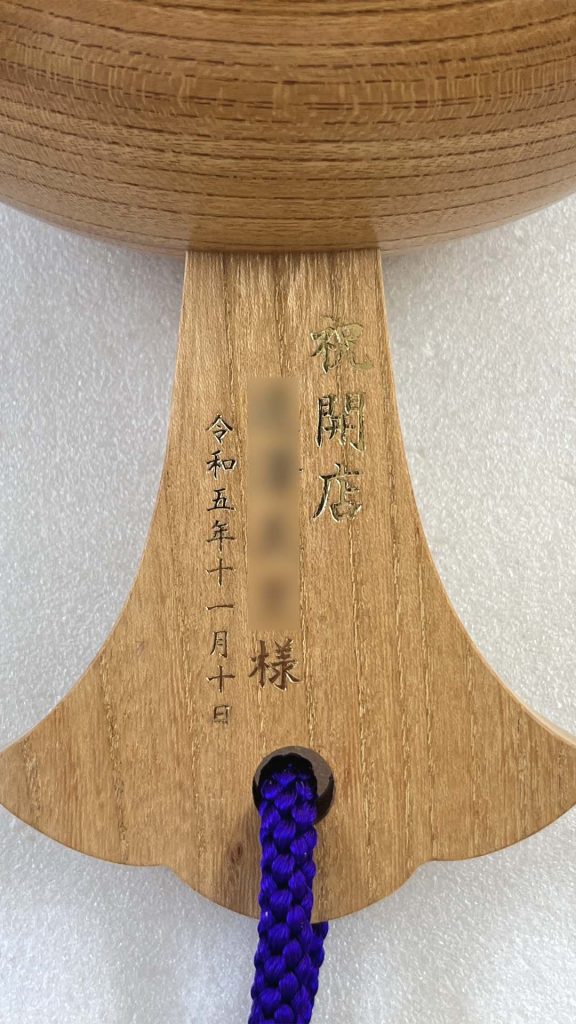 祝開店
様
令和五年十一月十日